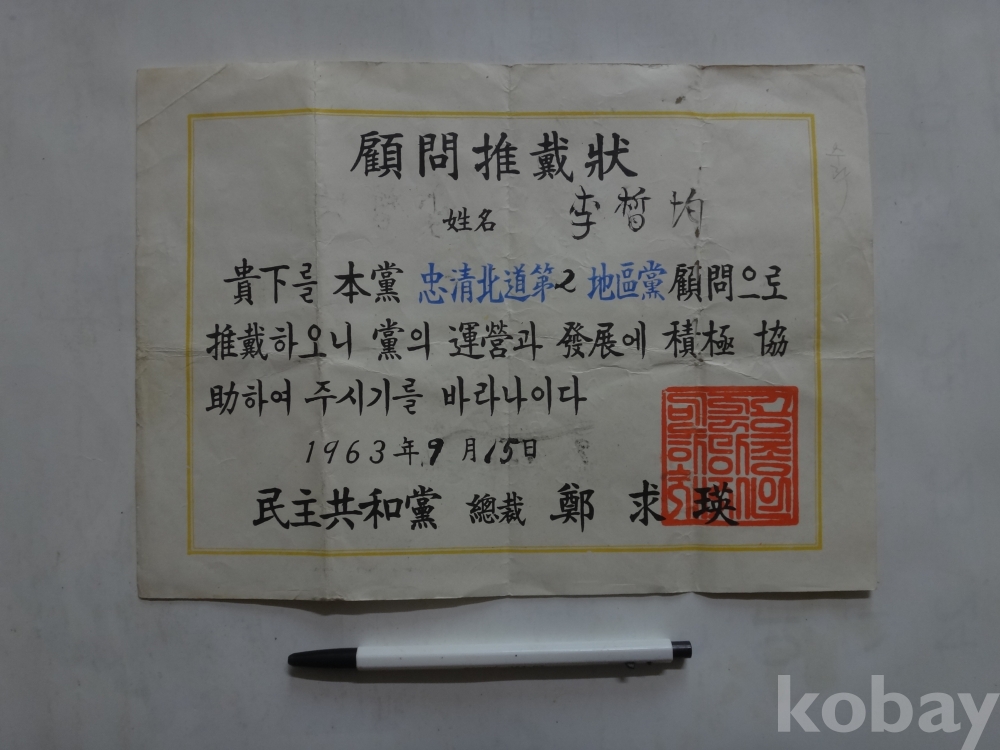 顧問推戴狀
姓名 李晳均
貴下를 本黨 忠清北道第2 地區黨 顧問으로
推戴하오니 黨의 運營과 發展에 積極 協
助하여 주시기를 바라나이다
1963年 9月 15日
民主共和黨 總裁 鄭求瑛
kobay